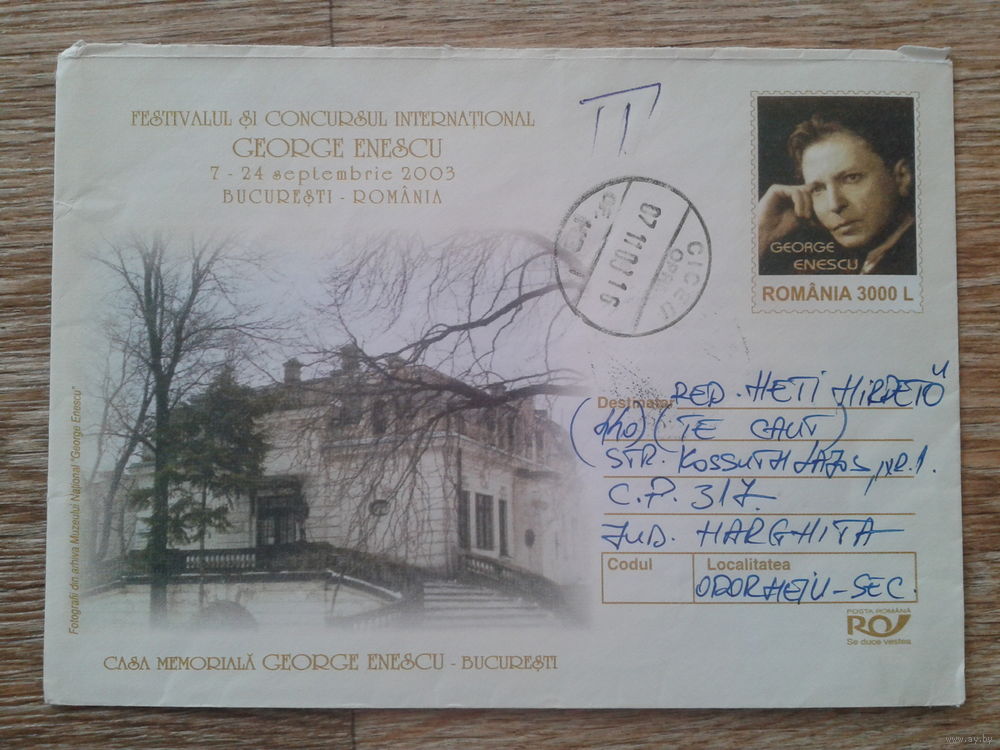 FESTIVALUL ȘI CONCURSUL INTERNAȚIONAL
GEORGE ENESCU
7 - 24 septembrie 2003
BUCUREȘTI - ROMÂNIA
GEORGE
ENESCU
ROMÂNIA 3000 L
CICEU
07 11 03 16
Destinatar
RED. HETI HIRDETŐ
(TE CAUT)
STR. KOSSUTH LAJOS, NR. 1.
C.P. 317
JUD. HARGHITA
Codul
Localitatea
ODORHEIU-SEC.
POSTA ROMÂNĂ
Se duce vestea
Fotografii din arhiva Muzeului Național "George Enescu"
CASA MEMORIALĂ GEORGE ENESCU - BUCUREȘTI
www.ay.by